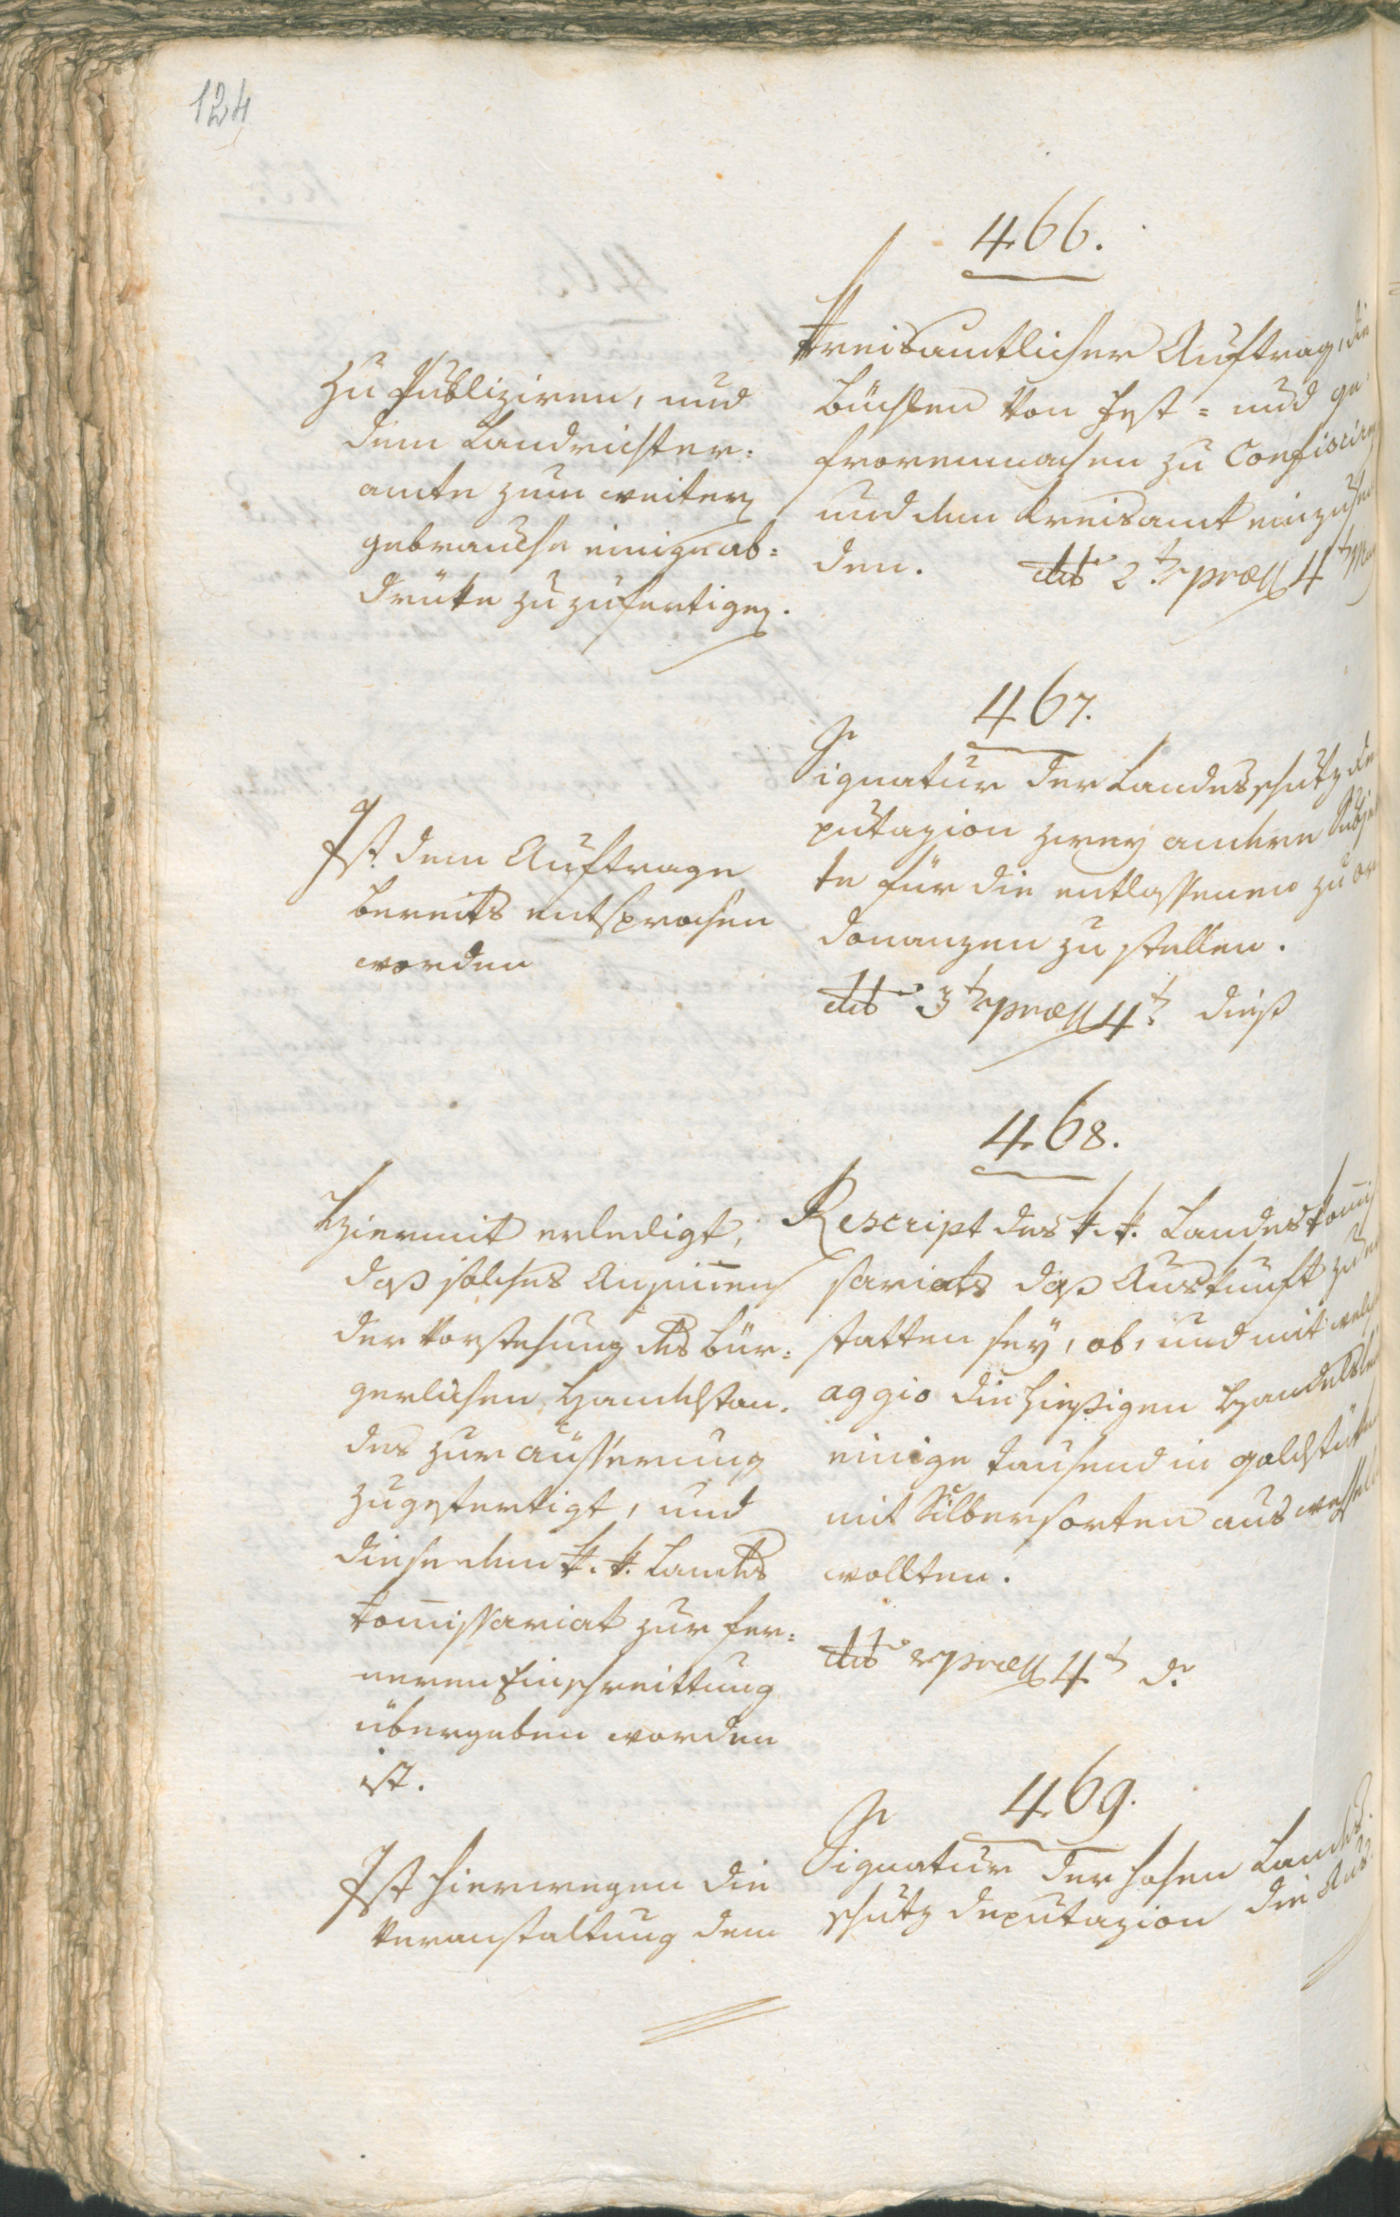 124
466.
Kreisamtlicher Auftrag, die
Büchlen von Fest- und ge
frorenmachen zu Confiscirn
und dem Kreisamt einzusen
den. dtto 2t præss 4t May
Zu Publiziren, und
dem Landrichter=
amte zum weitern
gebrauche einige ab=
drüke zuzufertigen.
467.
Signatur der Landesschutz de
putazion zwey andere Subjek
te für die entlassenen zu or
donanzen zu stellen.
dtto 3t præss 4t dieß
Ist dem Auftrage
bereits entsprochen
worden
468.
Rescript des k. k. Landeskom̄is
sariats daß Auskunft zu er
statten sey, ob, und mit welch
aggio die hießigen Handelsleut
einige tausend in goldstüke
mit Silbersorten auswechseln
wollten.
dtto præss 4t do
Hiermit erledigt,
daß solches Ansinnen
der Vorstehung des bür=
gerlichen Handelstan=
des zur äusserung
zugefertigt, und
diese dem k. k. Landes
kom̄issariat zur fer=
neren Einschreittung
übergeben worden
ist.
469.
Signatur der hohen Landes=
schutz deputazion die Aus
Ist hierwegen die
Veranstaltung dem